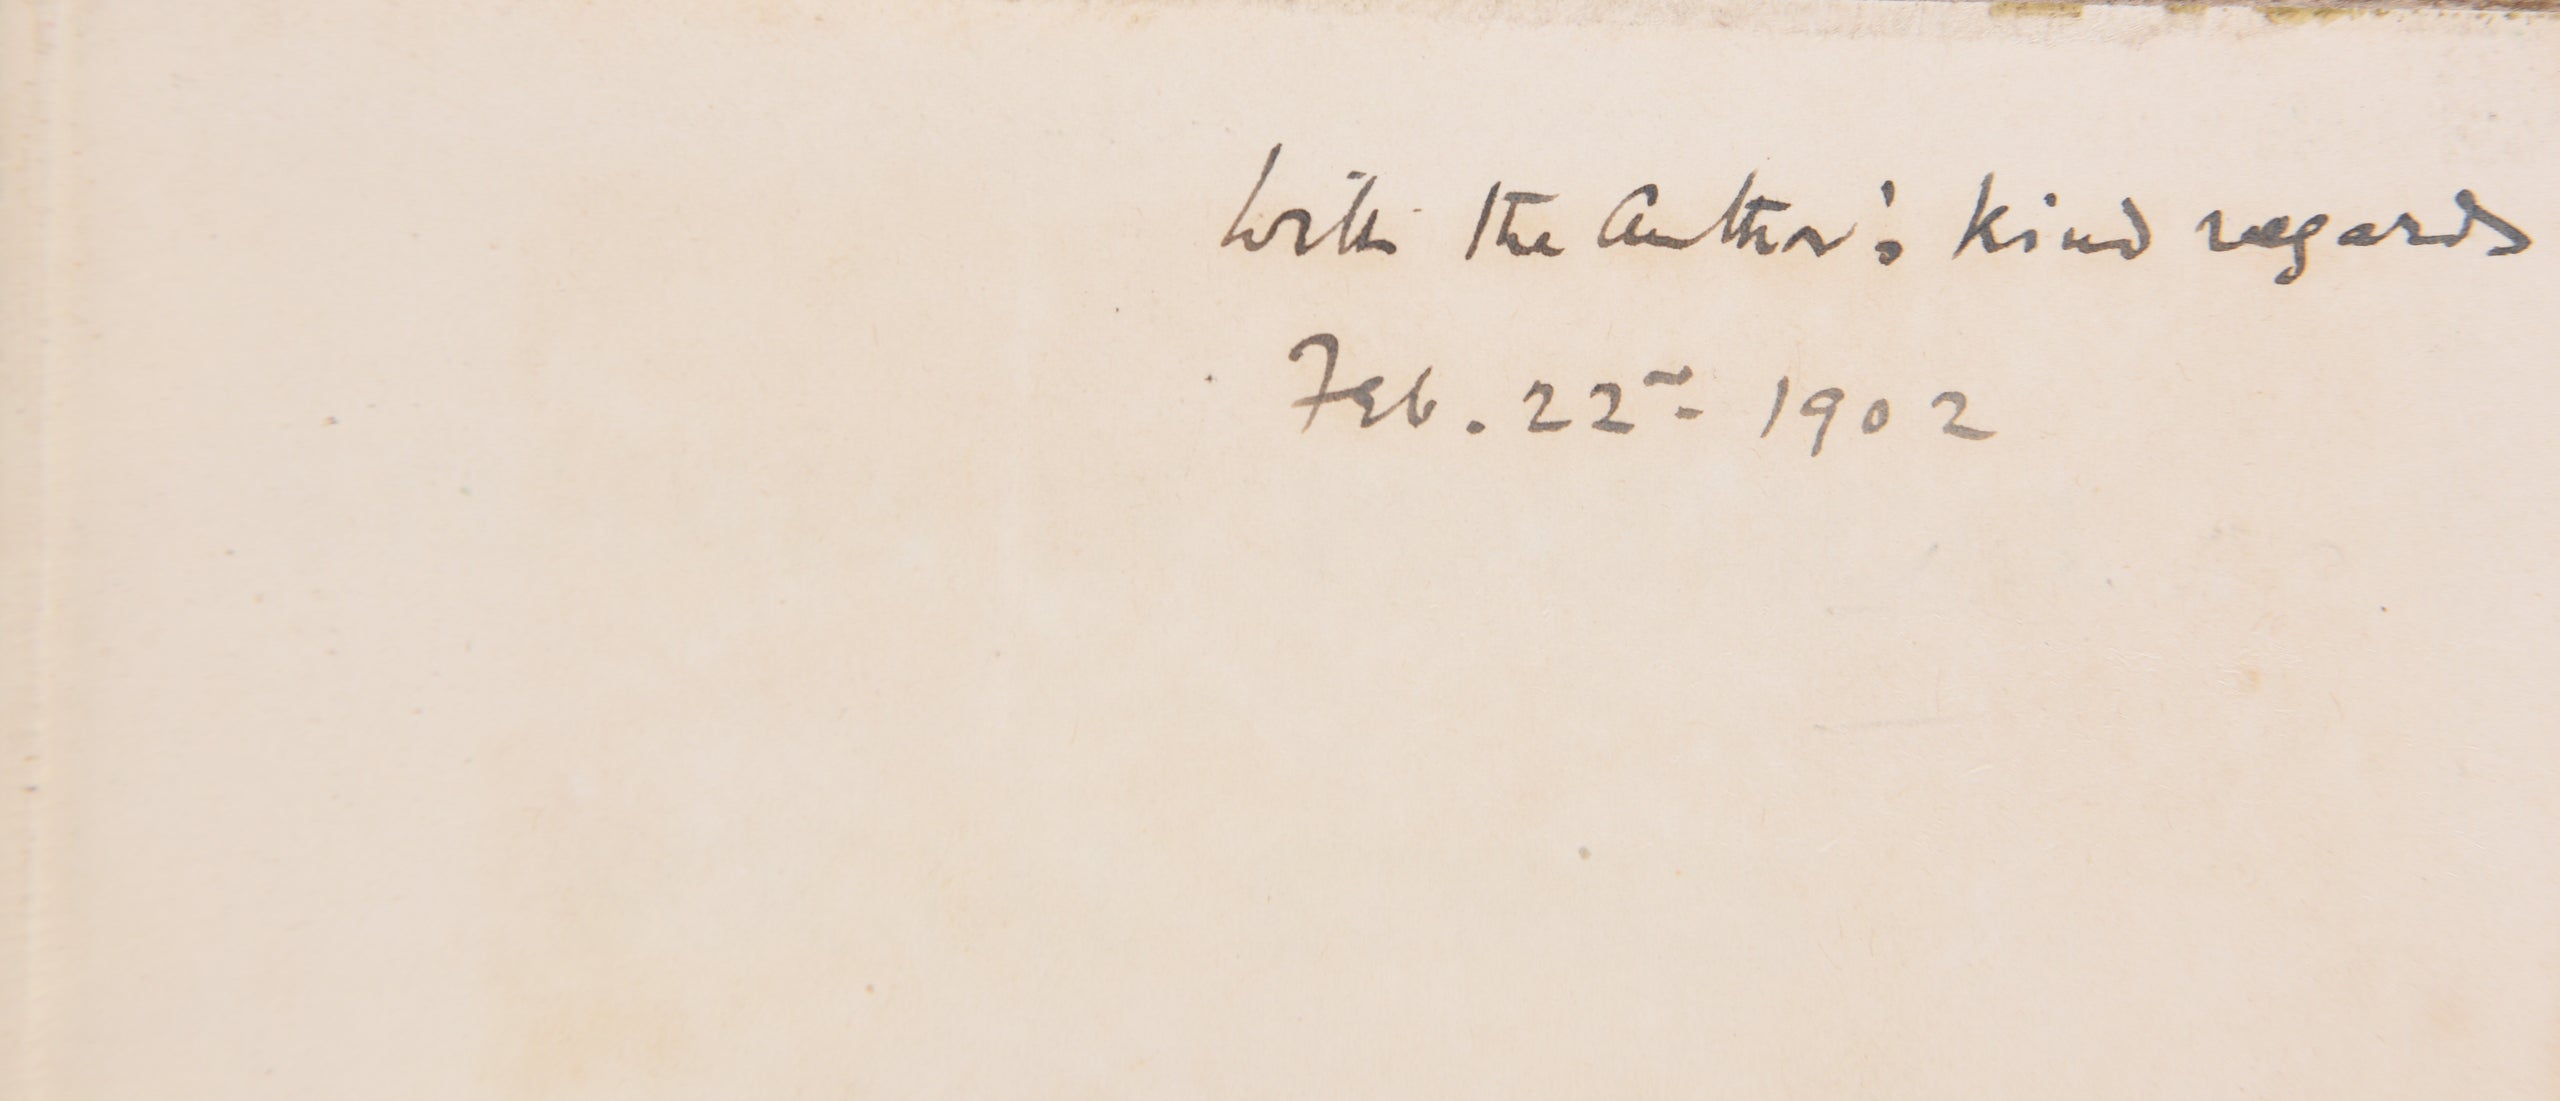 With the Author's kind regards
Feb. 22nd 1902